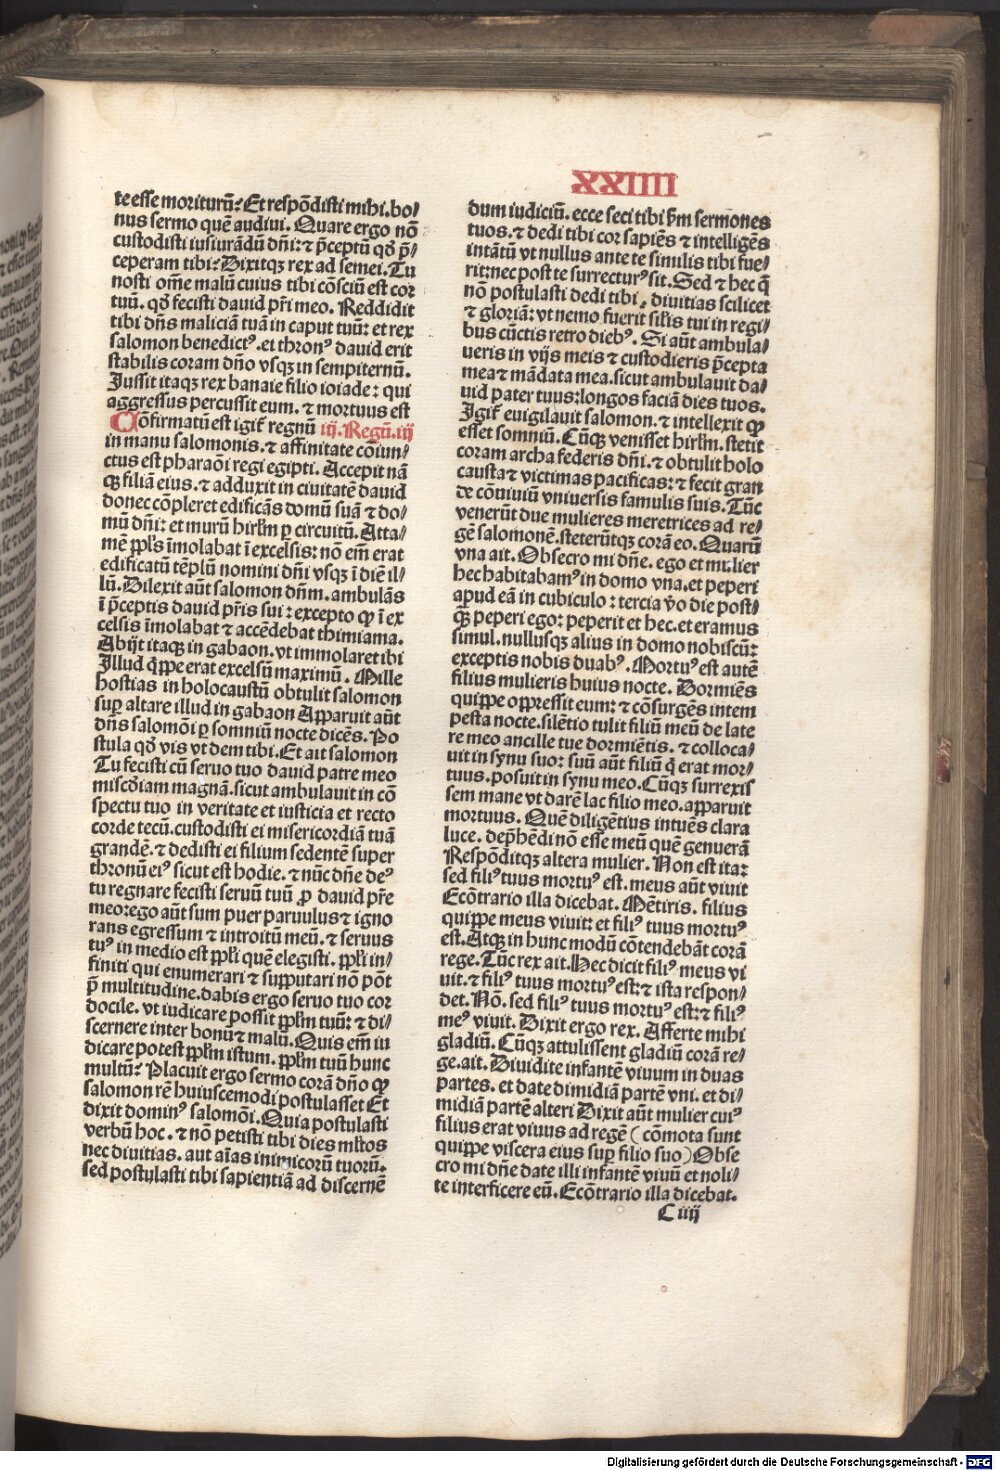 XXIIII
te esse moriturū? Et respōdisti mihi. bo/
nus sermo quē audivi. Quare ergo nō
custodisti iusiurādū dn̄i: et p̄ceptū qđ p̄/
ceperam tibi? Dixitqꝫ rex ad semei. Tu
nosti om̄e malū cuius tibi cōsciū est cor
tuū. qđ fecisti dauid pr̄i meo. Reddidit
tibi dn̄s maliciā tuā in caput tuū: et rex
salomon benedictꝰ. ei thronꝰ dauid erit
stabilis coram dn̄o vsqꝫ in sempiternū.
Jussit itaqꝫ rex banaie filio ioiade: qui
aggressus percussit eum. ⁊ mortuus est
Cōfirmatū est igit̄ regnū iij. Regū. iij
in manu salomonis. ⁊ affinitate cōiun/
ctus est pharaōi regi egipti. Accepit nā
qꝫ filiā eius. ⁊ adduxit in ciuitatē dauid
donec cōpleret edificās domū suā ⁊ do/
mū dn̄i: et murū hirl̄m ꝑ circuitū. Atta/
mē ppl̄s īmolabat ī excelsis: nō em̄ erat
edificatū tēplū nomini dn̄i vsqꝫ ī diē il/
lū. Dilexit aūt salomon dn̄m. ambulās
ī p̄ceptis dauid pr̄is sui: excepto ꝙ ī ex
celsis īmolabat ⁊ accēdebat thimiama.
Abijt itaqꝫ in gabaon. vt immolaret ibi
Illud q̄ppe erat excelsū maximū. Mille
hostias in holocaustū obtulit salomon
suꝑ altare illud in gabaon Apparuit aūt
dn̄s salomōi ꝑ somniū nocte dicēs. Po
stula qđ vis vt dem tibi. Et ait salomon
Tu fecisti cū seruo tuo dauid patre meo
miscđiam magnā. sicut ambulauit in cō
spectu tuo in veritate et iusticia et recto
corde tecū. custodisti ei misericordiā tuā
grandē. ⁊ dedisti ei filium sedentē super
thronū eiꝰ sicut est hodie. ⁊ nūc dn̄e deꝰ
tu regnare fecisti seruū tuū ꝓ dauid pr̄e
meo: ego aūt sum puer paruulus ⁊ igno
rans egressum ⁊ introitū meū. ⁊ seruus
tuꝰ in medio est ppl̄i quē elegisti. ppl̄i in/
finiti qui enumerari ⁊ supputari nō pōt
p̄ multitudine. dabis ergo seruo tuo cor
docile. vt iudicare possit ppl̄m tuū: ⁊ di/
scernere inter bonū ⁊ malū. Quis em̄ iu
dicare potest ppl̄m istum. ppl̄m tuū hunc
multū? Placuit ergo sermo corā dn̄o ꝙ
salomon rē huiuscemodi postulasset Et
dixit dominꝰ salomōi. Quia postulasti
verbū hoc. ⁊ nō petisti tibi dies ml̄tos
nec diuitias. aut aīas inimicorū tuorū.
sed postulasti tibi sapientiā ad discernē
dum iudiciū. ecce feci tibi ẜm sermōnes
tuos. ⁊ dedi tibi cor sapiēs ⁊ intelligēs
intātū vt nullus ante te similis tibi fue/
rit: nec post te surrecturꝰ sit. Sed ⁊ hec q̄
nō postulasti dedi tibi. diuitias scilicet
⁊ gloriā: vt nemo fuerit sil̄is tui in regi/
bus cūctis retro diebꝰ. Si aūt ambula/
ueris in vijs meis ⁊ custodieris p̄cepta
mea ⁊ mādata mea. sicut ambulauit da/
uid pater tuus: longos faciā dies tuos.
Igit̄ euigilauit salomon. ⁊ intellexit ꝙ
esset somniū. Cūqꝫ venisset hirl̄m. stetit
coram archa federis dn̄i. ⁊ obtulit holo
causta ⁊ victimas pacificas: ⁊ fecit gran
de cōuiuiū vniuersis famulis suis. Tūc
venerūt due mulieres meretrices ad re/
gē salomonē. steterūtqꝫ corā eo. Quarū
vna ait. Obsecro mi dn̄e. ego et mulier
hec habitabamꝰ in domo vna. et peperi
apud eā in cubiculo: tercia v̄o die post/
qꝫ̄ peperi ego: peperit et hec. et eramus
simul. nullusqꝫ alius in domo nobiscū:
exceptis nobis duabꝰ. Mortuꝰ est autē
filius mulieris huius nocte. Dormiēs
quippe oppressit eum: ⁊ cōsurgēs intem
pesta nocte. silētio tulit filiū meū de late
re meo ancille tue dormiētis. ⁊ colloca/
uit in synu suo: suū aūt filiū q̄ erat mor/
tuus. posuit in synu meo. Cūqꝫ surrexis
sem mane vt darē lac filio meo. apparuit
mortuus. Quē diligētius intuēs clara
luce. dep̄hēdi nō esse meū quē genuerā
Respōditqꝫ altera mulier. Non est ita:
sed filiꝰ tuus mortuꝰ est. meus aūt viuit
Ecōtrario illa dicebat. Mētiris. filius
quippe meus viuit: et filiꝰ tuus mortuꝰ
est. Atqꝫ in hunc modū cōtendebāt corā
rege. Tūc rex ait. Hec dicit filiꝰ meus vi
uit. ⁊ filiꝰ tuus mortuꝰ est: ⁊ ista respon/
det. Nō. sed filiꝰ tuus mortuꝰ est: ⁊ filiꝰ
meꝰ viuit. Dixit ergo rex. Afferte mihi
gladiū. Cūqꝫ attulissent gladiū corā re/
ge. ait. Diuidite infantē viuum in duas
partes. et date dimidiā partē vni. et di/
midiā partē alteri Dixit aūt mulier cuiꝰ
filius erat viuus ad regē (cōmota sunt
quippe viscera eius suꝑ filio suo) Obse
cro mi dn̄e date illi infantē viuū et noli/
te interficere eū. Ecōtrario illa dicebat.
C iiij
Digitalisierung gefördert durch die Deutsche Forschungsgemeinschaft - DFG